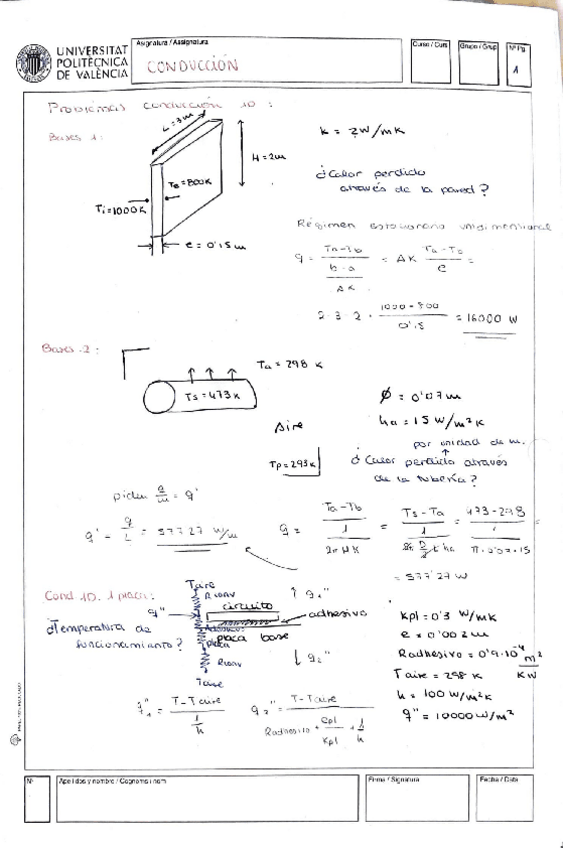 UNIVERSITAT
POLITÈCNICA
DE VALÈNCIA
Asignatura / Assignatura
CONDUCCIÓN
Curso / Curs
Grupo / Grup
Nº Pg.
1
Problemas conducción 1D :
Bases 1 :
L = 3m
H = 2m
Te = 800K
Ti = 1000K
e = 0'15m
k = 2W/mK
¿Calor perdido
através de la pared?
Régimen estacionario unidimensional
q = Ta-Tb / (b-a / AK) = AK Ta-Tb / e =
2·3·2 · 1000-800 / 0'15 = 16000 W
Bases 2 :
Ta = 298 K
Ts = 473K
Aire
Tp = 293K
Ø = 0'07m
ha = 15 W/m²K
por unidad de m.
¿Calor perdido através
de la tubería?
piden q/m = q'
q' = q/L = 577'27 W/m
q = Ta-Tb / = Ts-Ta / = 473-298 /
= 577'27 W
Cond 1D. 1 placa:
¿Temperatura de
funcionamiento?
q''
Taire
Rconv
circuito
adhesivo
placa base
placa
Rconv
Taire
↑ q1''
↓ q2''
Kpl = 0'3 W/mK
e = 0'002m
Radhesivo = 0'9·10⁻⁴ m²/KW
Taire = 298 K
h = 100 W/m²K
q'' = 10000 W/m²
q1'' = T-Taire / (1/h)
q2'' = T-Taire / (Radhesivo + epl/Kpl + 1/h)
Nº
Apellidos y nombre / Cognoms i nom
Firma / Signatura
Fecha / Data